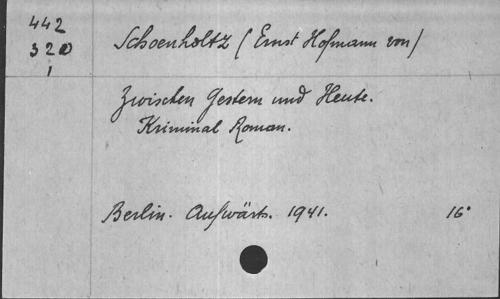 442
320
1
Schoenholtz (Ernst Hofmann von)
Zwischen Gestern und Heute.
Kriminal Roman.
Berlin. Aufwärts. 1941. 16°